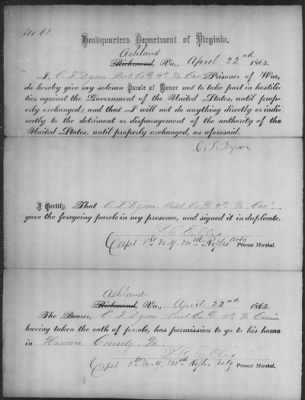 Headquarters Department of Virginia,
Ashland
Richmond, Va., April 22nd 1865.
I, Prisoner of War,
do hereby give my solemn Parole of Honor not to take part in hostili-
ties against the Government of the United States, until prop-
erly exchanged; and that I will not do anything directly or in-
directly to the detriment or disparagement of the authority of the
United States, until properly exchanged, as aforesaid.
I Certify, That
gave the foregoing parole in my presence, and signed it in duplicate.
Capt 1st N.Y. Mtd Rifles Provost Marshal.
Ashland
Richmond, Va., April 22nd 1865.
The Bearer,
having taken the oath of parole, has permission to go to his home
in Hanover County Va
Capt 1st N.Y. Mtd Rifles Provost Marshal.